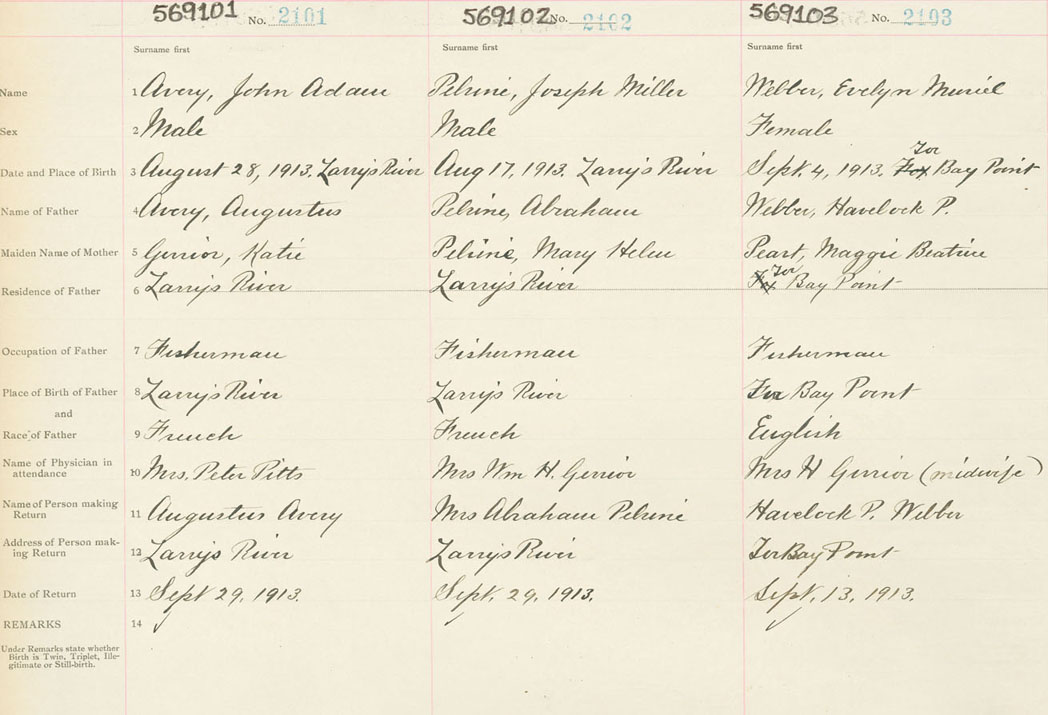 569101 No. 2101 569102 No. 2102 569103 No. 2103
Surname first Surname first Surname first
Name 1 Avery, John Adam Pelrine, Joseph Miller Webber, Evelyn Muriel
Sex 2 Male Male Female
Tor
Date and Place of Birth 3 August 28, 1913. Larry's River Aug 17, 1913. Larry's River Sept. 4, 1913. Fox Bay Point
Name of Father 4 Avery, Augustus Pelrine, Abraham Webber, Havelock P.
Maiden Name of Mother 5 Gerrior, Katie Pelrine, Mary Helen Peart, Maggie Beatrice
Tor
Residence of Father 6 Larry's River Larry's River Fox Bay Point
Occupation of Father 7 Fisherman Fisherman Fisherman
Place of Birth of Father 8 Larry's River Larry's River Bay Point
and
Race of Father 9 French French English
Name of Physician in
attendance 10 Mrs. Peter Pitts Mrs Wm H. Gerrior Mrs H Gerrior (midwife)
Name of Person making
Return 11 Augustus Avery Mrs Abraham Pelrine Havelock P. Webber
Address of Person mak-
ing Return 12 Larry's River Larry's River Tor Bay Point
Date of Return 13 Sept 29, 1913. Sept. 29, 1913. Sept. 13, 1913.
REMARKS 14
Under Remarks state whether
Birth is Twin, Triplet, Ille-
gitimate or Still-birth.